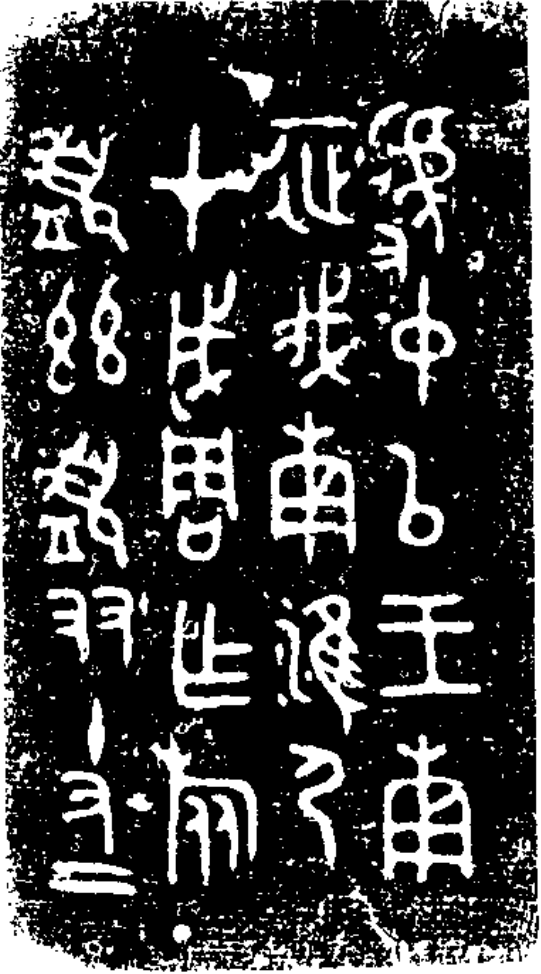 虢中以王南
征伐南淮尸
才成周乍旅
盨茲盨友十又二